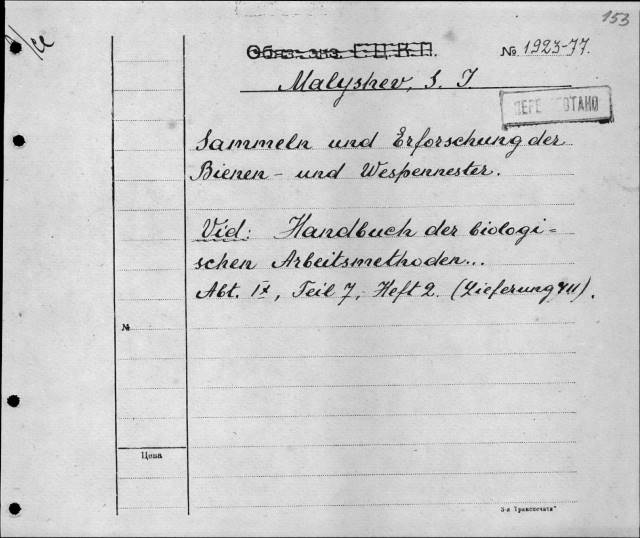 153
Обяз. экз. Г.Ц.К.П.
№ 1923-77.
Malyshev, S. I.
ПЕРЕ ОТАНО
Sammeln und Erforschung der
Bienen- und Wespennester.
Vid: Handbuch der biologi=
schen Arbeitsmethoden...
Abt. IX, Teil 7, Heft 2. (Lieferung 411).
№
Цена
3-я Транспечать